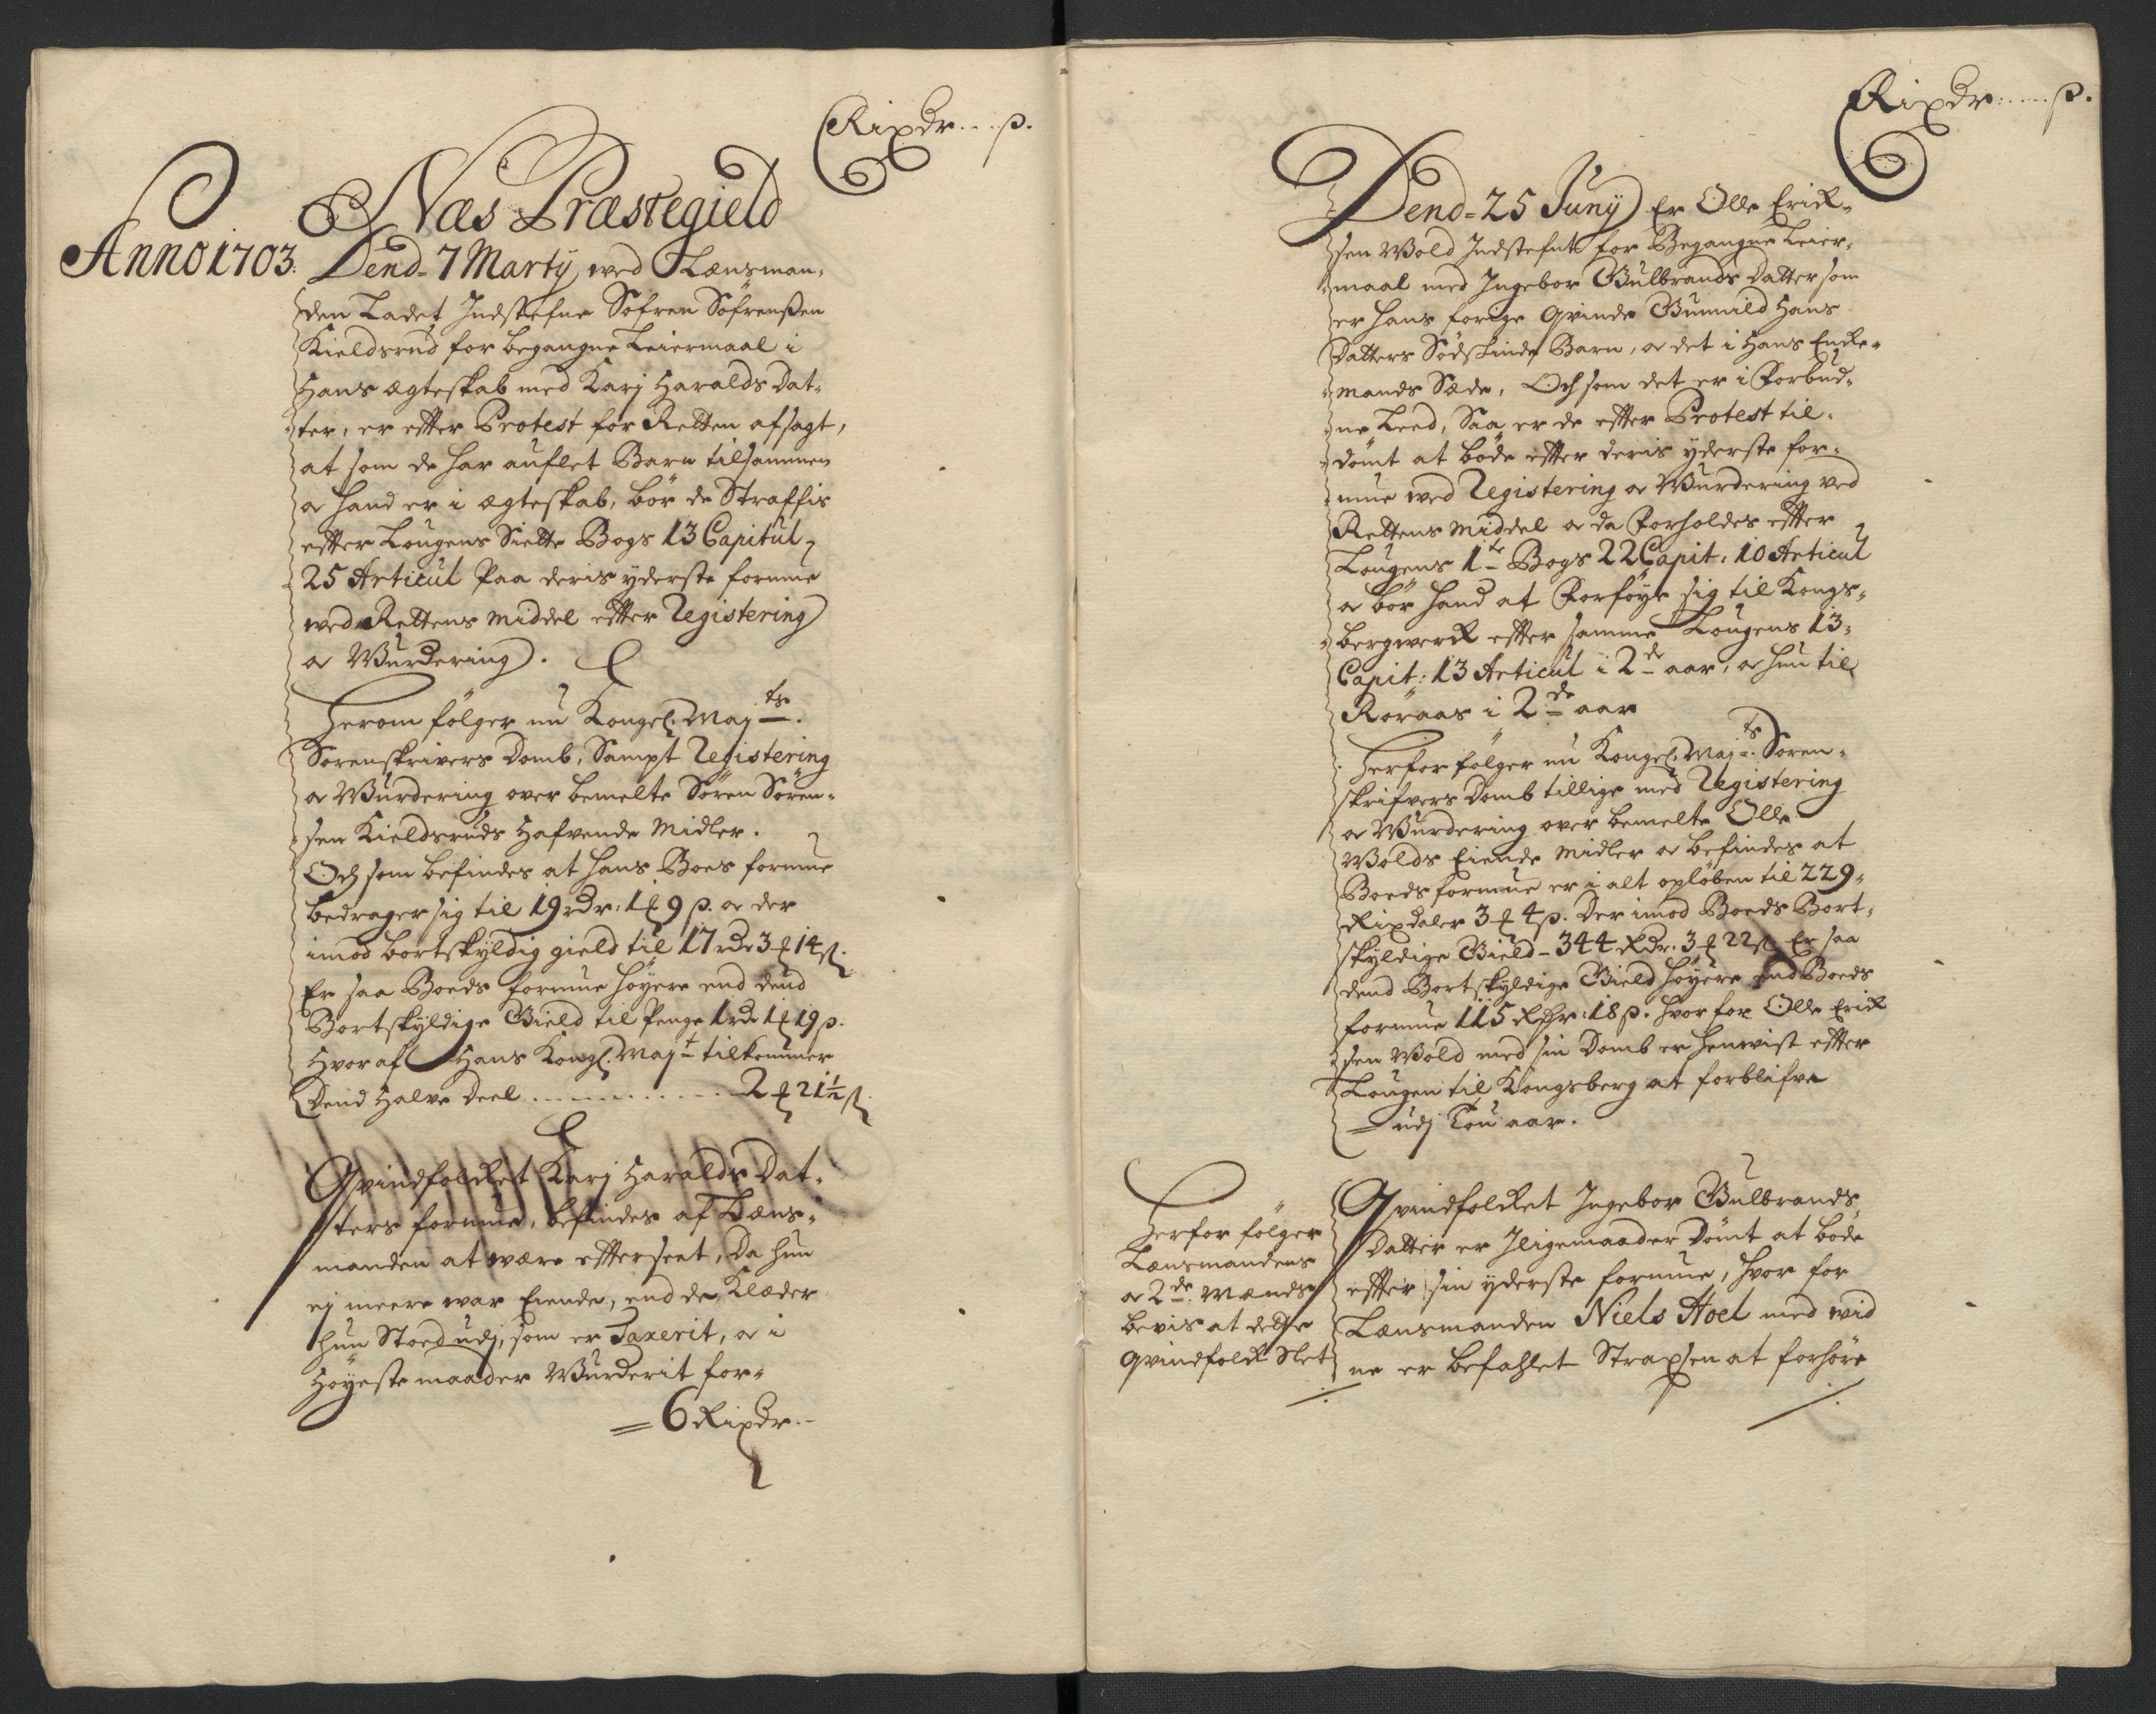 Rixdr....ß.
Næs Præstegield
Anno 1703.
Dend 7 Marty, wed Lænsman-
den Ladet Indstefne Søfren Søfrenßen
Kieldsrud for begangne Leiermaal i
Hans ægteskab med Karj Haralds Dat-
ter, er effter Protest for Retten afsagt,
at som de har auflet Barn tilsammen
oc hand er i ægteskab, bør de Straffis
effter Lougens Siette Bogs 13 Capitul,
25 Articul Paa deris yderste formue
wed Rettens middel effter Registering
oc Wurdering.
Herom følger nu Kongel. May.ts
Sorenskrivers Domb, Sampt Registering
oc Wurdering over bemelte Søren Søren-
sen Kieldsruds Hafvende Midler.
Och som befindes at hans Boes formue
bedrager sig til 19 rdr: 1 ꝑ 9 ß. oc der
imod bortskyldig gield til 17 rdr 3 ꝑ 14 ß.
Er saa Boeds formue høyere end dend
Bortskyldige Gield til Penge 1 rdr 1 ꝑ 19 ß.
Hvoraf Hans Kongl. May.t tilkommer
Dend Halve Deel ............ 2 ꝑ 21½ ß
Qvindfolcket Karj Haralds Dat-
ters formue, befindes af Læns-
manden at være effterseet, Da hun
ej meere war Eiende, end de Klæder
hun Stoed udj, som er Taxerit, oc i
Høyeste maader Wurderit for-
= 6 Rixdr.-
Rixdr.....ß.
Dend 25 Juny Er Olle Erick-
sen Wold Indstefnt for Begangne Leier-
maal med Ingebor Gulbrands Datter som
er hans forige Qvinde Gunnild Hans
Datters Sødskinde Barn, oc det i Hans Encke-
mands Sæde, Och som det er i Forbud-
ne Leed, Saa er de effter Protest til-
dømt at bøde effter deris yderste for-
mue wed Registering oc Wurdering ved
Rettens middel oc da Forholdes effter
Lougens 1te Bogs 22 Capit: 10 Articul
oc bør hand at Forføye sig til Kongs-
bergwerck effter samme Lougens 13-
Capit: 13 Articul i 2de aar, oc hun til
Røraas i 2de aar
Herfor følger nu Kongel. May.ts Soren-
skrifvers Domb tillige med Registering
oc Wurdering over bemelte Olle
Wolds Eiende Midler oc befindes at
Boeds formue er i alt opløben til 229-
Rixdaler 3 ꝑ 4 ß. Der imod Boeds Bort-
skyldige Gield - 344 Rdr. 3 ꝑ 22 ß Er saa
dend Bortskyldige Gield høyere end Boeds
formue 115 Rdr: 18 ß. hvor for Olle Erick
sen Wold med sin Domb er henwist effter
Lougen til Kongsberg at forblifve
= udj Tou aar.
Herfor følger
Lænsmandens
oc 2de Mænds
bevis at dette
Qvindfolck Slet
Qvindfolcket Ingebor Gulbrands
Datter er Jligemaader Dømt at bøde
effter sin yderste formue, hvor for
Lænsmanden Niels Hoel med wid
ne er befahlet Strax sen at forhøre